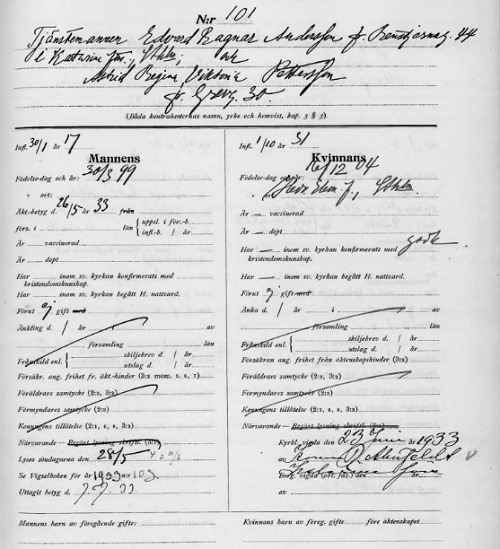 N:r 101
Tjänstemannen Edvard Ragnar Andersson fr. Renstjernasg. 44
i Katarina förs., Sthlm, och
Astrid Regina Viktoria Pettersson
fr. Grevg. 30.
(Båda kontrahenternas namn, yrke och hemvist, kap. 3 § 3)
Infl. 30/1 år 17
Mannens
Födelse-dag och år: 30/3 99
" ort:
Äkt.-betyg d. 26/5 år 33 från
förs. i län { uppsl. i förs.-b.
infl.-b. / år
Är vaccinerad
Är döpt
Har inom sv. kyrkan konfirmerats med
kristendomskunskap.
Har inom sv. kyrkan begått H. nattvard.
Förut ej gift med
Änkling d. / år av
församling län
Frånskild enl. { skiljebrev d. / år
utslag d. / år
Försäkr. ang. frihet fr. äkt.-hinder (3:2 mom. 5, 6, 7)
Föräldrars samtycke (2:2, 3:2)
Förmyndares samtycke (2:2)
Konungens tillåtelse (2:1, 3:2)
Närvarande Begärt lysning skriftl. (3:1)
Lyses söndagarna den 28/5 4 o 11/6
Se Vigselboken för år 1933 nr 103.
Uttagit betyg d. 7.7.33
Mannens barn i föregående gifte:
Infl. 1/10 år 31
Kvinnans
Födelse-dag och år: 16/12 04
Hedv. Elen. f., Sthlm
Är vaccinerad
Är döpt
Har inom sv. kyrkan konfirmerats med goda
kristendomskunskap.
Har inom sv. kyrkan begått H. nattvard.
Förut ej gift med
Änka d. / år av
församling län
Frånskild enl. { skiljebrev d. / år
utslag d. / år
Försäkran ang. frihet från äktenskapshinder (3:2)
Föräldrars samtycke (2:2, 3:2)
Förmyndares samtycke (2:2)
Konungens tillåtelse (2:1, 3:2)
Närvarande Begärt lysning skriftl.
Kyrkl. vigda den 23 Juni år 1933
av
Borg. vigda (ort, län) den / år
av
Kvinnans barn i föreg. gifte före äktenskapet